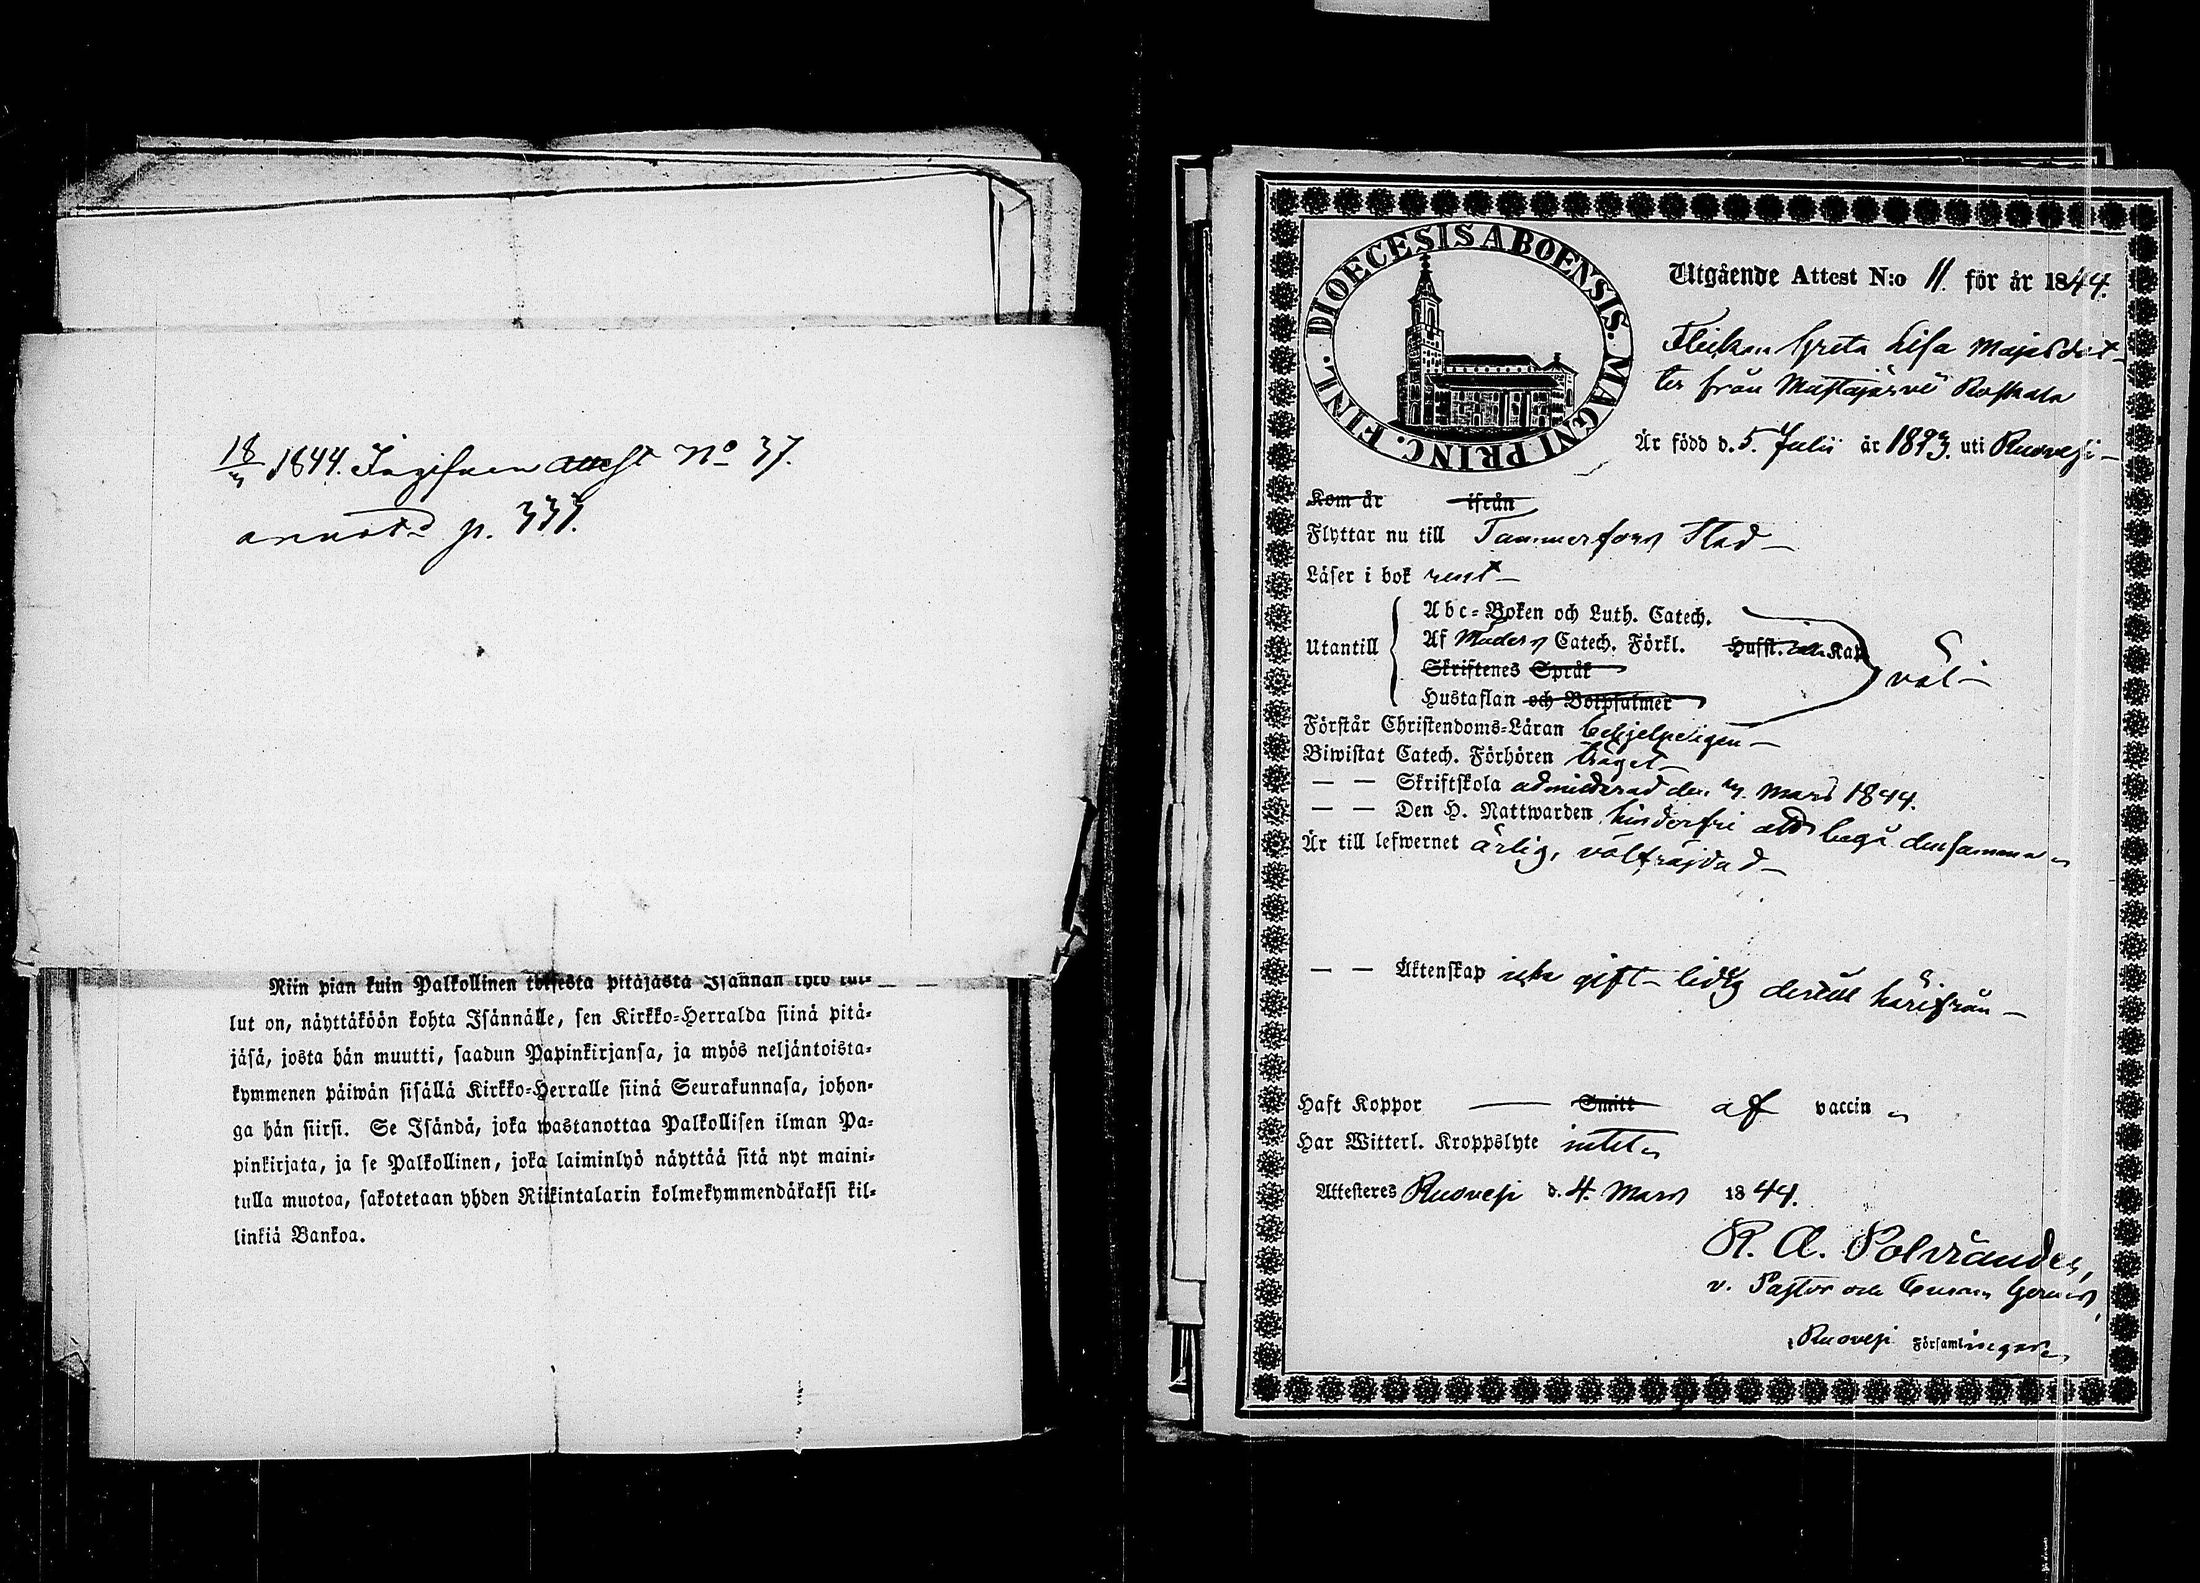 18/3 1844. Ingifven attest No 37.
annotd p. 337.
Niin pian kuin Palkollinen toisesta pitäjästä Isännän työö tul-
lut on, näyttäköön kohta Isännälle, sen Kirkko-Herralda siinä pitä-
jäsä, josta hän muutti, saadun Papinkirjansa, ja myös neljäntoista-
kymmenen päiwän sisällä Kirkko-Herralle siinä Seurakunnasa, johon-
ga hän siirsi. Se Isändä, joka wastanottaa Palkollisen ilman Pa-
pinkirjata, ja se Palkollinen, joka laiminlyö näyttää sitä nyt maini-
tulla muotoa, sakotetaan yhden Riikintalarin kolmekymmendäkaksi kil-
linkiä Bankoa.
DIOECESIS ABOENSIS. MAGNI PRINC. FINL.
Utgående Attest N:o 11. för år 1844.
Flickan Greta Lisa Majasdot-
ter från Mustajärvi
Är född d. 5. Julii år 1823. uti Ruovesi
Kom år ifrån
Flyttar nu till Tammerfors Stad
Läser i bok rent
Utantill
Abc-Boken och Luth. Catech.
Af Catech. Förkl. Husst. Kap
Skriftenes Språk
Hustaflan och Botpsalmer
väl
Förstår Christendoms-Läran behjelpeligen
Biwistat Catech. Förhören tröget
— — Skriftskola admitterad den 3. Mars 1844.
— — Den H. Nattwarden hinderfri att begå densamma
Är till lefwernet ärlig, välfräjdad
— — Äktenskap icke gift ledig dertill härifrån
Haft Koppor — Smitt af vaccin
Har Witterl. Kroppslyte intet
Attesteres Ruovesi d. 4. Mars 1844.
R. A. Polviander,
v. Pastor och
Ruovesi Församlingar